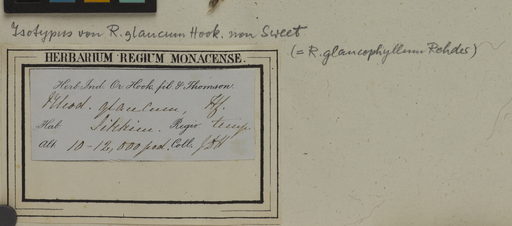 Isotypus von R. glaucum Hook. non Sweet
(= R. glaucophyllum Rehder)
HERBARIUM REGIUM MONACENSE.
Herb. Ind. Or. Hook. fil. & Thomson.
Rhod. glaucum, Hf.
Hab. Sikkim. Regio temp.
Alt. 10-12,000 ped. Coll. JDH